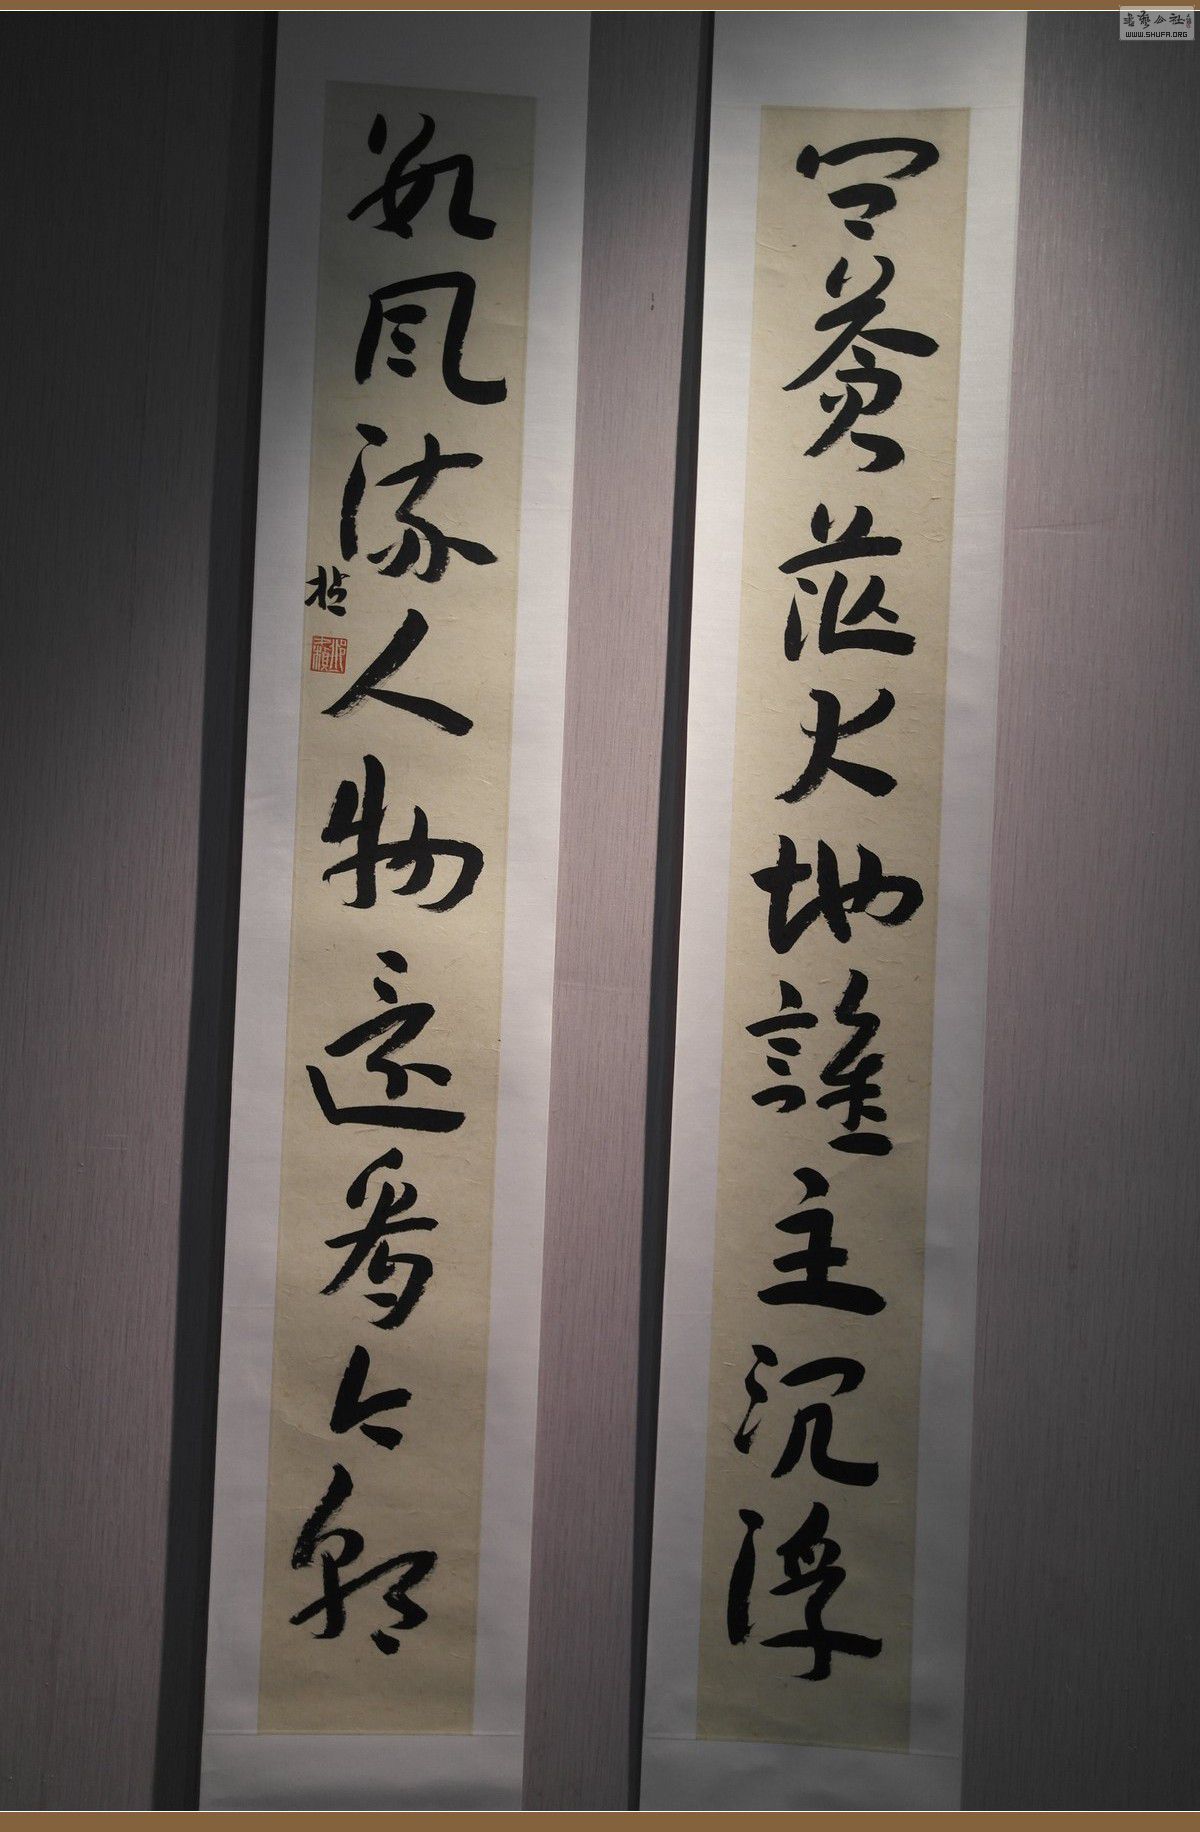 問蒼茫大地誰主沉浮
數風流人物還看今朝
書藝公社
WWW.SHUFA.ORG